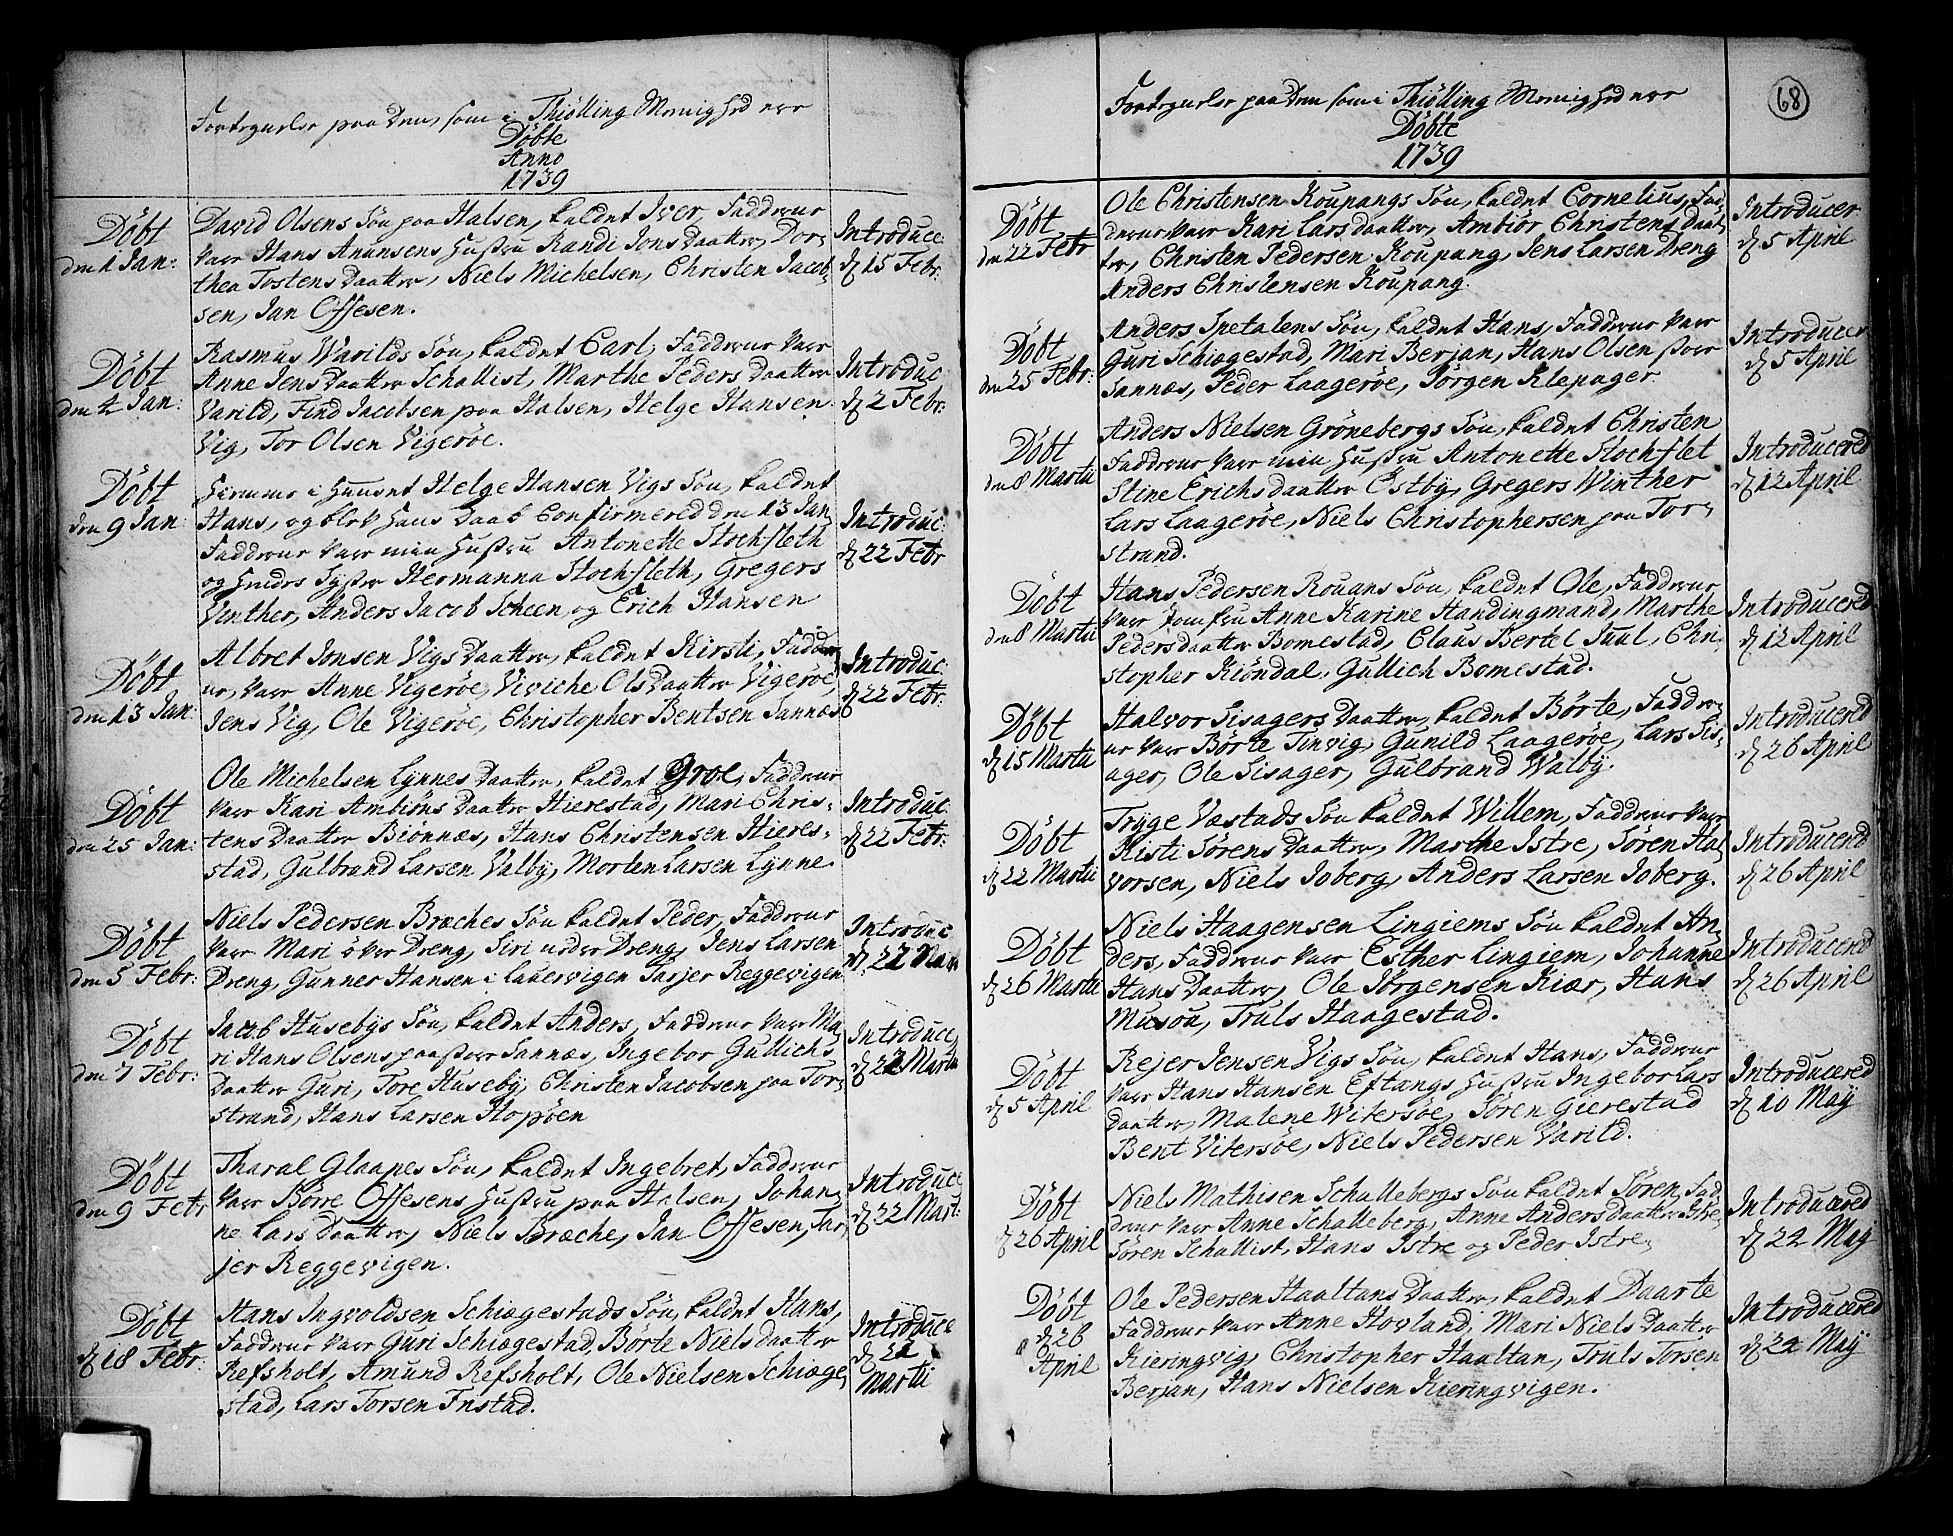 Fortegnelse paa dem, som i Thiölling Menighed ere
Döbte
Anno
1739
Döbt
den 1 Jan:
David Olsens Sön paa Halsen, kaldet Iver, Fadderne
vare Hans Anunsens Hustru Randi Jons Daatter, Dor-
thea Tostens Daatter, Niels Michelsen, Christen Jacob-
sen, Jan Offesen.
Introduce:
d 15 Febr:
Döbt
den 2 Jan:
Rasmus Varilds Sön, kaldet Carl, Fadderne vare
Anne Jens Daatter Schallist, Marthe Peders Daatter
Varild, Find Jacobsen paa Halsen, Helge Hansen
Vig, Tor Olsen Vigeröe.
Introduc
d 2 Febr:
Döbt
den 9 Jan:
Hiemme i Huuset Helge Hansen Vigs Sön, kaldet
Hans, og blev hans Daab Confirmered den 13 Jan,
Fadderne vare min Hustru Antonette Stochfleth
og hendes Syster Hermanna Stochfleth, Gregers
Vinther, Anders Jacob Scheen og Erich Hansen
Introduc:
d 22 Febr
Döbt
den 13 Jan:
Albret Jonsen Vigs Daatter, kaldet Kirsti, Fadder-
ne, vare Anne Vigeröe, Viviche Ols Daatter Vigeröe,
Jens Vig, Ole Vigeröe, Christopher Bentsen Sannæs
Introduc:
d 22 Febr:
Döbt
den 25 Jan:
Ole Michelsen Lynnes Daatter, kaldet Groe, Fadderne
vare Kari Ambiöns Daatter Hierestad, Mari Chris-
tens Daatter Biönnæs, Hans Christensen Hieres-
stad, Gulbrand Larsen Valby, Morten Larsen Lynne.
Introduc:
d 22 Febr:
Döbt
den 5 Febr:
Niels Pedersen Bræches Sön kaldet Peder, Fadderne
vare Mari över Dreng, Siri under Dreng, Jens Larsen
Dreng, Gunner Hansen i Laversvigen Tarjer Reggevigen
Introduc
d: 22 Mar
Döbt
den 7 Febr:
Jacob Husebys Sön, kaldet Anders, Fadderne vare Ma-
ri Hans Olsens paa store Sannæs, Ingebor Gullichs
Daatter Guri, Tore Huseby, Christen Jacobsen paa Tor-
strand, Hans Larsen Hopöen
Introduce
d 22 Martii
Döbt
den 9 Febr
Tharal Glaapes Sön, kaldet Ingebret, Fadderne
vare Börre Offesens Hustru paa Halsen, Johan-
ne Lars Daatter, Niels Bræche, Jan Offesen, Tar-
jer Reggevigen.
Introduce
d 22 Mart:
Döbt
d 18 Febr:
Hans Ingvoldsen Schiægestads Sön, kaldet Hans,
Fadderne vare Guri Schiægestad, Börte Niels Daatter
Refsholt, Amund Refsholt, Ole Nielsen Schiæge-
stad, Lars Torsen Fristad.
Introduce
d 22
Martii
68
Fortegnelse paa dem som i Thiölling Menighed ere
Döbte
1739
Döbt
den 22 Febr
Ole Christensen Koupangs Sön, kaldet Cornelius, Fad-
derne vare Kari Lars Daatter, Ambiör Christens Daat-
ter, Christen Pedersen Koupang, Jens Larsen Dreng
Anders Christensen Koupang.
Introducer
d 5 April
Döbt
den 25 Febr:
Anders Spetalens Sön, kaldet Hans, Fadderne vare
Guri Schiægestad, Mari Berjan, Hans Olsen store
Sannæs, Peder Laageröe, Jörgen Klepager.
Introducer
d 5 April
Döbt
den 8 Martii
Anders Nielsen Grönebergs Sön, kaldet Christen
Fadderne vare min Hustru Antonette Stochflet
Stine Erichs Daatter Östby, Gregers Winther
Lars Laageröe, Niels Christophersen paa Tor-
strand.
Introducered
d 12 April
Döbt
den 8 Martii
Hans Pedersen Rouans Sön, kaldet Ole, Fadderne
vare Jomfru Anne Karine Handingmand, Marthe
Pedersdaatter Bomestad, Claus Bertel Juul, Chri-
stopher Kiöndal, Gullich Bomestad.
Introducered
d 12 April
Döbt
d 15 Martii
Halvor Sisagers Daatter, kaldet Börte, Fadder-
ne vare Börte Tinvig, Gunild Laageröe, Lars Sis-
ager, Ole Sisager, Gulbrand Walby.
Introducered
d 26 April
Döbt
d 22 Martii
Tryge Væstads Sön kaldet Willem, Fadderne vare
Kisti Sörens Daatter, Marthe Istre, Sören Hal-
vorsen, Niels Joberg, Anders Larsen Joberg.
Introducered
d 26 April
Döbt
d 26 Martii
Niels Haagensen Lingiems Sön kaldet An-
ders, Fadderne vare Esther Lingiem, Johanne
Hans Daatter, Ole Jörgensen Kiær, Hans
Musöa, Truls Haagestad.
Introducered
d 26 April
Döbt
d 5 April
Rejer Jensen Vigs Sön, kaldet Hans, Fadderne
vare Hans Hansen Eftangs Hustru Ingebor Lars
Daatter, Malene Witersöe, Sören Gierestad
Bent Vitersöe, Niels Pedersen Varild.
Introducered
d 10 Maÿ
Döbt
d 26 April
Niels Mathisen Schallebergs Sön kaldet Sören, Fad-
derne vare Anne Schalleberg, Anne Anders Daatter Istre,
Sören Schallist, Hans Istre og Peder Istre.
Introducered
d 22 Maÿ
Döbt
d 26
April
Ole Pedersen Haaltans Daatter, kaldet Daarte
Fadderne vare Anne Hovland, Mari Niels Daatter
Kieringvig, Christopher Haaltan, Truls Torsen
Berjan, Hans Nielsen Kieringvigen.
Introducered
d 22 Maÿ